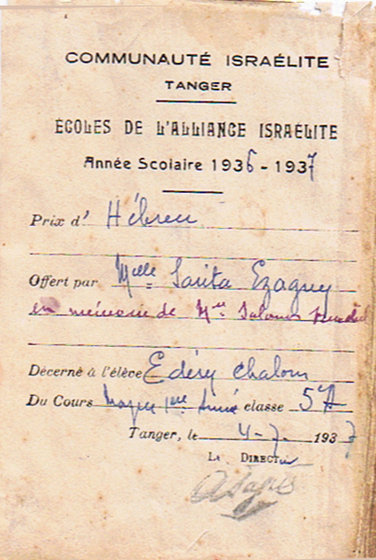 COMMUNAUTÉ ISRAÉLITE
TANGER
ÉCOLES DE L'ALLIANCE ISRAÉLITE
Année Scolaire 1936 - 1937
Prix d' Hébreu
Offert par Melle Sarita Ezaguy
en mémoire de Mr Salomon
Décerné à l'élève Edery Chalom
Du Cours Moyen 1ère Année classe 5e A
Tanger, le 4-7- 1937
LE DIRECTEUR